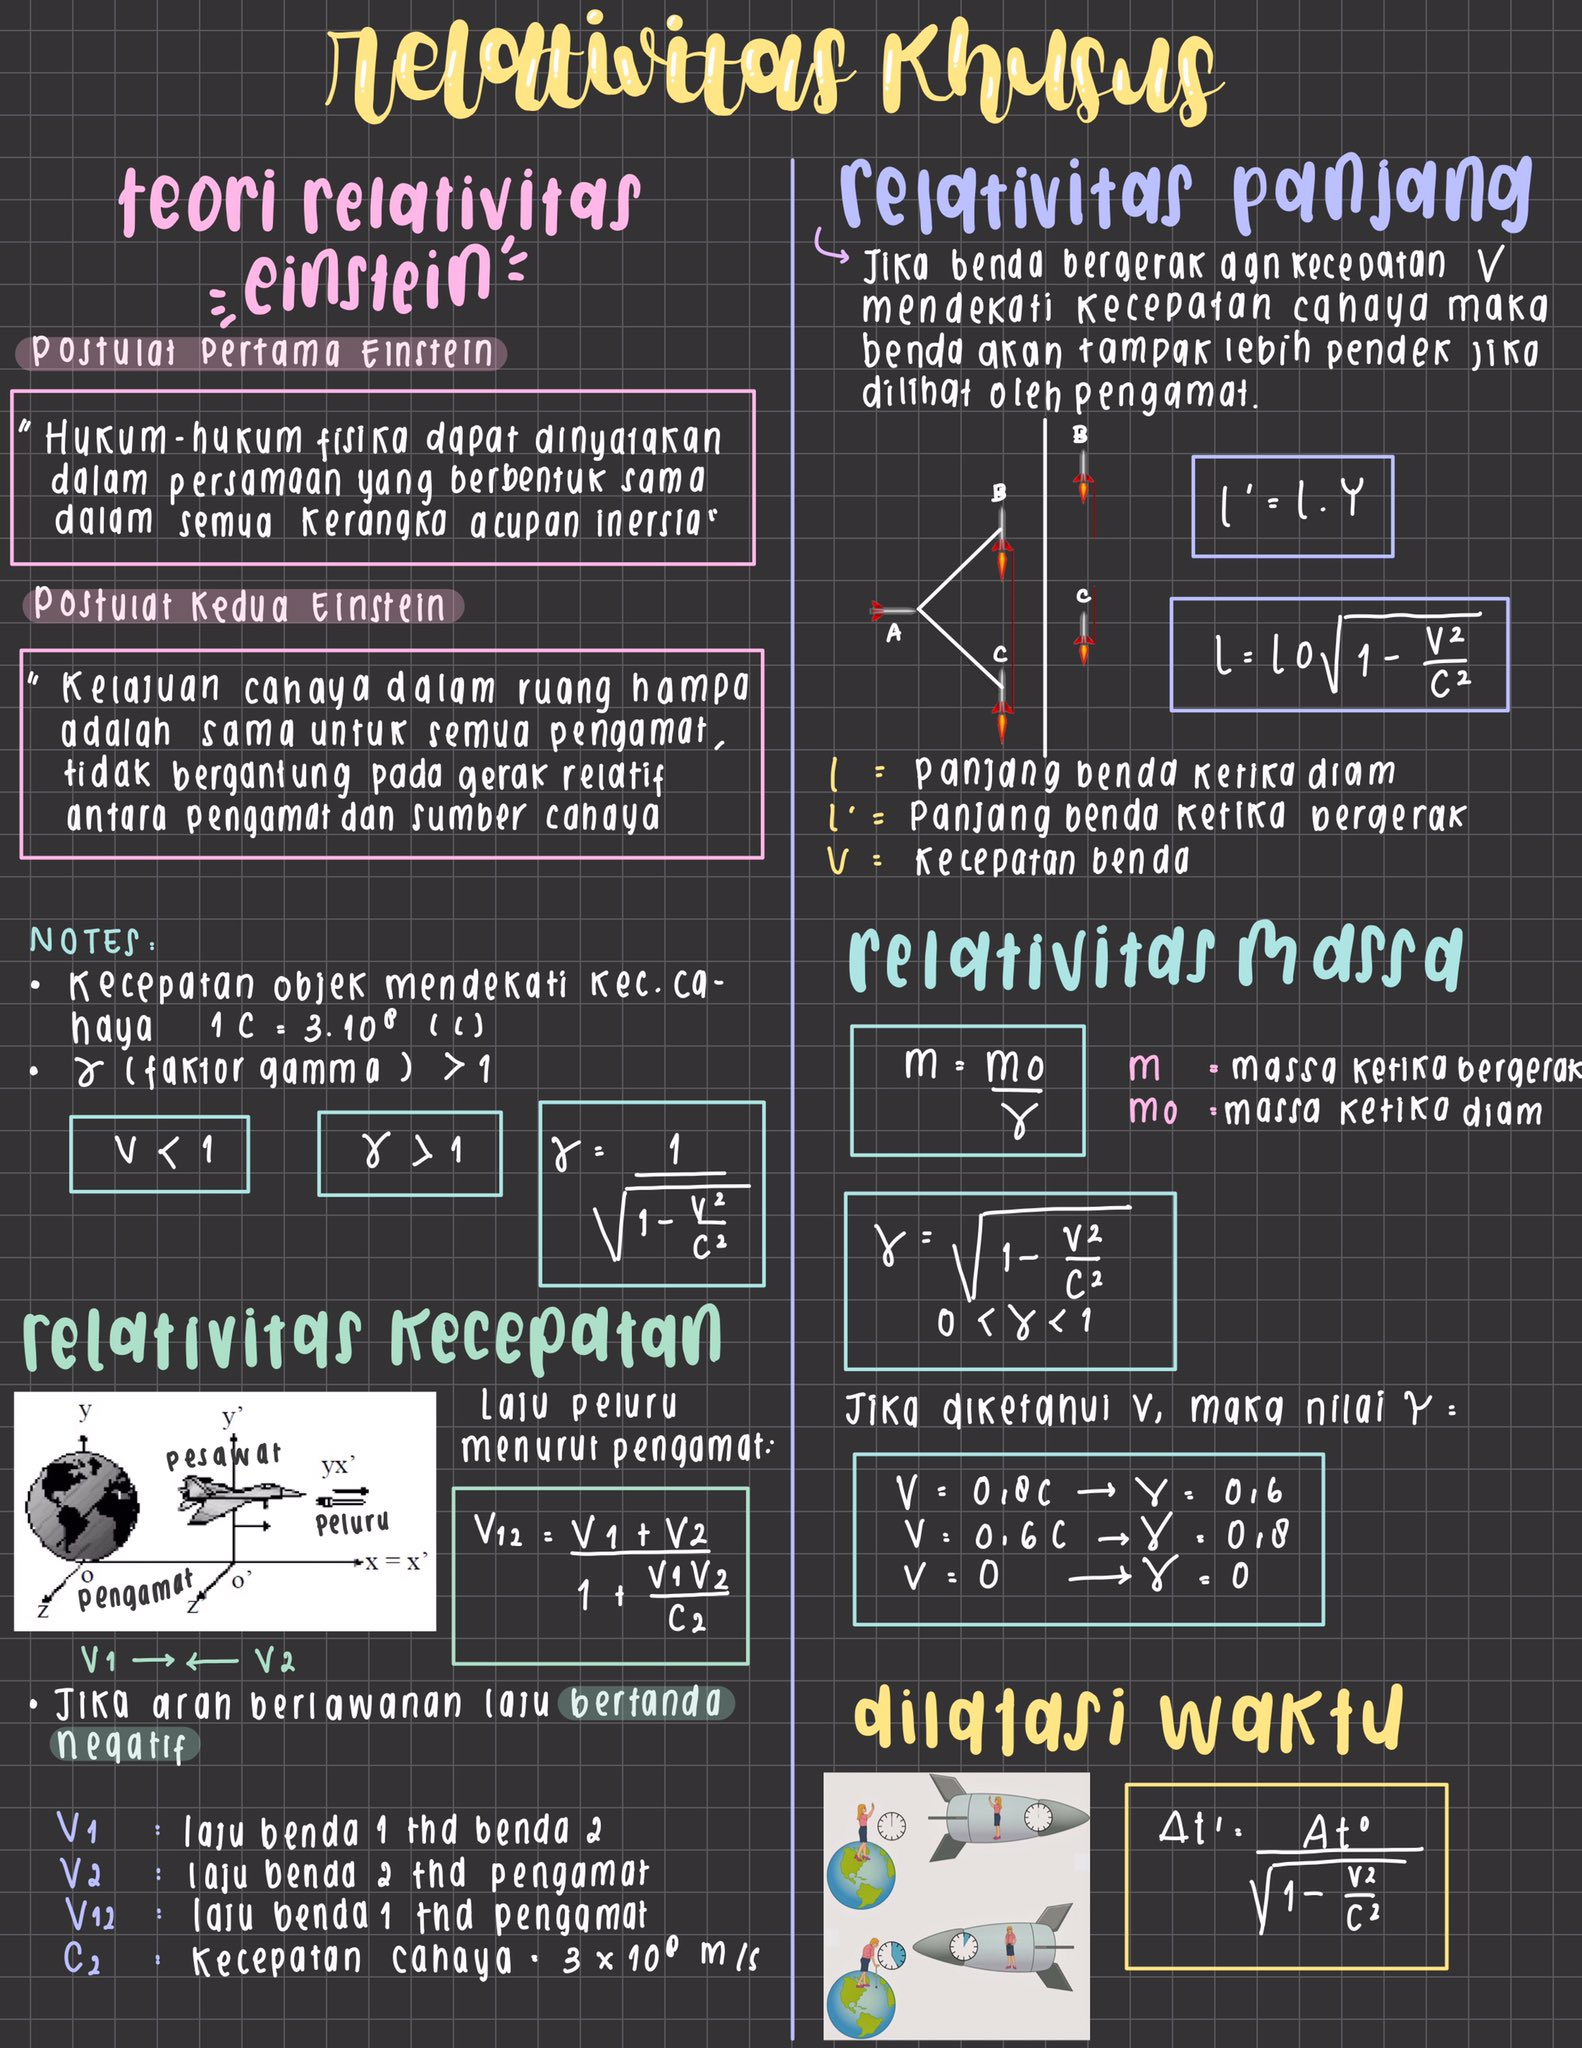 relativitas khusus
teori relativitas
einstein
Postulat Pertama Einstein
" Hukum-hukum fisika dapat dinyatakan
dalam persamaan yang berbentuk sama
dalam semua kerangka acupan inersia"
Postulat Kedua Einstein
" Kelajuan cahaya dalam ruang hampa
adalah sama untuk semua pengamat,
tidak bergantung pada gerak relatif
antara pengamat dan sumber cahaya
NOTES:
• Kecepatan objek mendekati kec. ca-
haya 1 C = 3.10⁸ (c)
• γ (faktor gamma) > 1
v < 1
γ > 1
γ = 1
√1 - V²/C²
relativitas kecepatan
y
y'
pesawat
yx'
peluru
x = x'
o
o'
pengamat
z
z
Laju peluru
menurut pengamat:
V12 = V1 + V2
1 + V1V2/C2
V1 → ← V2
• Jika arah berlawanan laju bertanda
negatif
V1 : laju benda 1 thd benda 2
V2 : laju benda 2 thd pengamat
V12 : laju benda 1 thd pengamat
C2 : kecepatan cahaya · 3 × 10⁸ m/s
relativitas panjang
Jika benda bergerak dgn kecepatan V
mendekati kecepatan cahaya maka
benda akan tampak lebih pendek jika
dilihat oleh pengamat.
B
B
A
C
C
l' = l . γ
l = lo√1 - V²/C²
l = panjang benda ketika diam
l' = Panjang benda ketika bergerak
v = kecepatan benda
relativitas massa
m = mo/γ
m = massa ketika bergerak
mo = massa ketika diam
γ = √1 - V2/C²
0 < γ < 1
Jika diketahui V, maka nilai γ =
V = 0,8C → γ = 0,6
V = 0,6C → γ = 0,8
V = 0 → γ = 0
dilatasi waktu
Δt' = Δt⁰
√1 - V2/C²